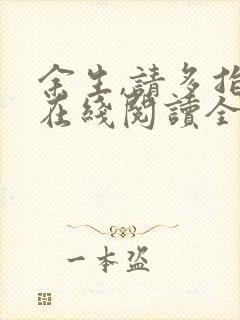 余生,請多指
在綫閱讀全
一本盜